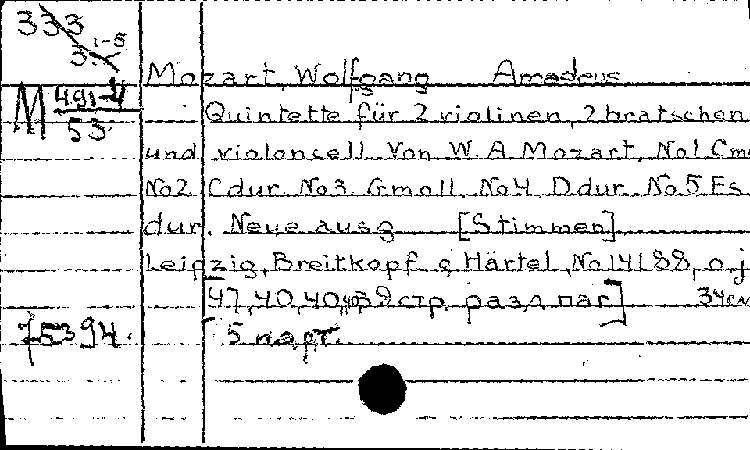 333
3.i-3
Mozart, Wolfgang Amadeus
M 491-4
53.
Quintette für 2 violinen, 2 bratschen
und violoncell von W. A. Mozart, No1 Cmo
No2 Cdur, No3 Gmoll, No4 Ddur, No5 Es
dur. Neue ausg [Stimmen]
Leipzig, Breitkopf & Härtel, No 14188, o. j
стр. разд паг] 34см
75394. 5 парт.